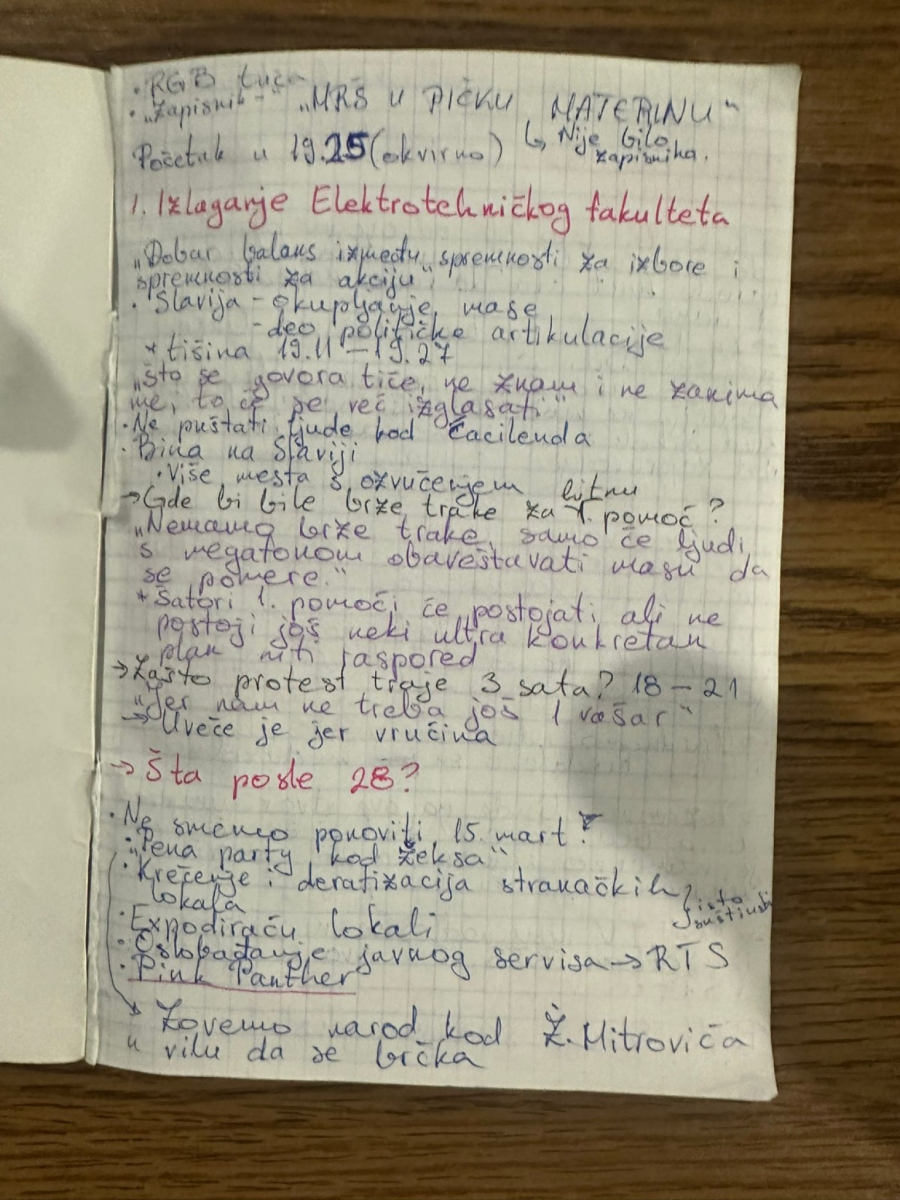 • RGB tuča
• „Zapisnik“ - „MRŠ U PIČKU MATERINU“
↳ Nije bilo zapisnika.
Početak u 19.25 (okvirno)
1. Izlaganje Elektrotehničkog fakulteta
„Dobar balans između spremnosti za izbore i
spremnosti za akciju“
• Slavija - okupljanje mase
- deo političke artikulacije
* tišina 19.11 - 19.27
„Što se govora tiče, ne znam i ne zanima
me, to će se već izglasati“
• Ne puštati ljude kod Ćacilenda
• Bina na Slaviji
• Više mesta s ozvučenjem
→ Gde bi bile brze trake za hitnu 1. pomoć?
„Nemamo brze trake, samo će ljudi
s megafonom obaveštavati masu da
se pomere.“
* Šatori 1. pomoći će postojati, ali ne
postoji još neki ultra konkretan
plan niti raspored
→ Zašto protest traje 3 sata? 18 - 21
„Jer nam ne treba još 1 vašar“
→ Uveče je jer vrućina
→ Šta posle 28?
• Ne smemo ponoviti 15. mart
• „Pena party kod Žeksa“
• Krečenje i deratizacija stranačkih
lokala
isto
• Expodiraću lokali
• Oslobađanje javnog servisa → RTS
• Pink Panther
Zovemo narod kod Ž. Mitrovića
u vilu da se brčka